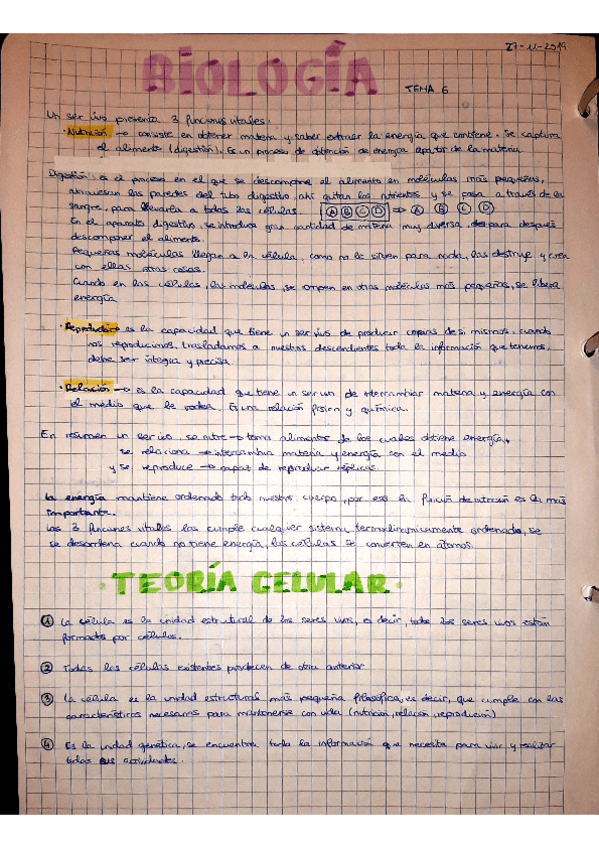 27-11-2019
BIOLOGÍA
TEMA 6
Un ser vivo presenta 3 funciones vitales:
· Nutrición → consiste en obtener materia y saber extraer la energía que contiene. Se captura
el alimento (digestión). Es un proceso de obtención de energía a partir de la materia
Digestión: es el proceso en el que se descompone el alimento en moléculas más pequeñas,
atraviesan las paredes del tubo digestivo, ahí quitan los nutrientes y se pasa a través de la
sangre, para llevarla a todas las células. A B C D ⇒ A B C D
En el aparato digestivo, se introduce gran cantidad de materia muy diversa, para después
descomponer el alimento.
Pequeñas moléculas llegan a la célula, como no le sirven para nada, las destruye y crea
con ellas otras cosas.
Cuando en las células, las moléculas, se rompen en otras moléculas más pequeñas, se libera
energía
· Reproducción es la capacidad que tiene un ser vivo de producir copias de si mismos. cuando
nos reproducimos, trasladamos a nuestros descendientes toda la información que tenemos,
debe ser íntegra y precisa
· Relación → es la capacidad que tiene un ser vivo de intercambiar materia y energía con
el medio que le rodea. Es una relación física y química.
En resumen un ser vivo, se nutre → toma alimentos de los cuales obtiene energía,
se relaciona → intercambia materia y energía con el medio
y se reproduce → capaz de reproducir réplicas.
La energía mantiene ordenado todo nuestro cuerpo, por eso la función de nutrición es la más
importante.
Las 3 funciones vitales las cumple cualquier sistema termodinámicamente ordenado, se
se desordena cuando no tiene energía, las células se convierten en átomos.
· TEORÍA CELULAR ·
① La célula es la unidad estructural de los seres vivos, es decir, todos los seres vivos están
formados por células.
② Todas las células existentes proceden de otra anterior
③ La célula es la unidad estructural más pequeña filosófica, es decir, que cumple con las
características necesarias para mantenerse con vida (nutrición, relación, reproducción)
④ Es la unidad genética, se encuentra toda la información que necesita para vivir y realizar
todas sus actividades.